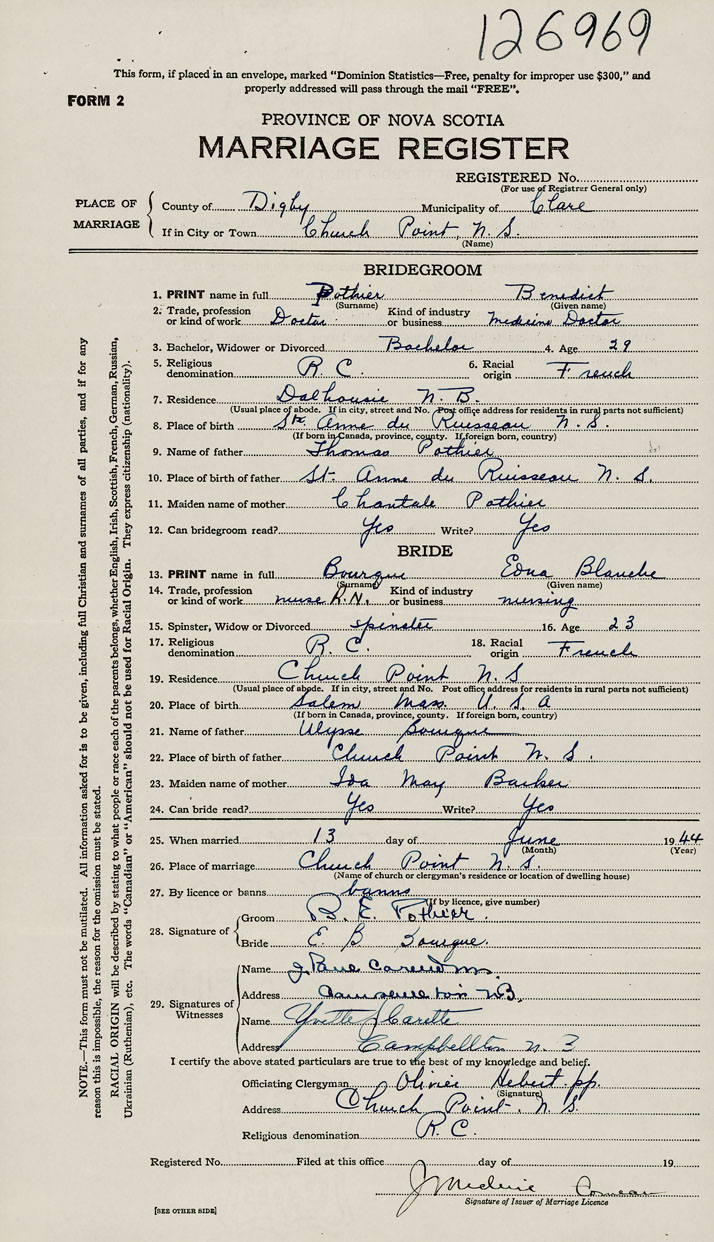 126969
This form, if placed in an envelope, marked "Dominion Statistics—Free, penalty for improper use $300," and
properly addressed will pass through the mail "FREE".
FORM 2
PROVINCE OF NOVA SCOTIA
MARRIAGE REGISTER
REGISTERED No.
(For use of Registrar General only)
PLACE OF MARRIAGE
County of Digby Municipality of Clare
If in City or Town Church Point, N.S.
(Name)
BRIDEGROOM
1. PRINT name in full Pothier Benedict
(Surname) (Given name)
2. Trade, profession or kind of work Doctor Kind of industry or business Medicine Doctor
3. Bachelor, Widower or Divorced Bachelor 4. Age 29
5. Religious denomination R. C. 6. Racial origin French
7. Residence Dalhousie N. B.
(Usual place of abode. If in city, street and No. Post office address for residents in rural parts not sufficient)
8. Place of birth Ste. Anne du Ruisseau N. S.
(If born in Canada, province, county. If foreign born, country)
9. Name of father Thomas Pothier
10. Place of birth of father St. Anne du Ruisseau N. S.
11. Maiden name of mother Chantale Pothier
12. Can bridegroom read? Yes Write? Yes
BRIDE
13. PRINT name in full Bourque Edna Blanche
(Surname) (Given name)
14. Trade, profession or kind of work nurse R.N. Kind of industry or business nursing
15. Spinster, Widow or Divorced spinster 16. Age 23
17. Religious denomination R. C. 18. Racial origin French
19. Residence Church Point N. S
(Usual place of abode. If in city, street and No. Post office address for residents in rural parts not sufficient)
20. Place of birth Salem Mass. U. S. A
(If born in Canada, province, county. If foreign born, country)
21. Name of father Ulysse Bourque
22. Place of birth of father Church Point N. S.
23. Maiden name of mother Ida May Barker
24. Can bride read? Yes Write? Yes
25. When married 13 day of June 1944
(Month) (Year)
26. Place of marriage Church Point N. S.
(Name of church or clergyman's residence or location of dwelling house)
27. By licence or banns banns
(If by licence, give number)
28. Signature of
Groom B. E. Pothier.
Bride E. B Bourque.
29. Signatures of Witnesses
Name J. Paul
Address N.B.
Name Yvette
Address Campbellton N. B
I certify the above stated particulars are true to the best of my knowledge and belief.
Officiating Clergyman Olivier Hebert pp.
(Signature)
Address Church Point, N. S.
Religious denomination R. C.
Registered No. Filed at this office day of 19
J Medérie Comeau
Signature of Issuer of Marriage Licence
[SEE OTHER SIDE]
NOTE.—This form must not be mutilated. All information asked for is to be given, including full Christian and surnames of all parties, and if for any
reason this is impossible, the reason for the omission must be stated.
RACIAL ORIGIN will be described by stating to what people or race each of the parents belongs, whether English, Irish, Scottish, French, German, Russian,
Ukrainian (Ruthenian), etc. The words "Canadian" or "American" should not be used for Racial Origin. They express citizenship (nationality).